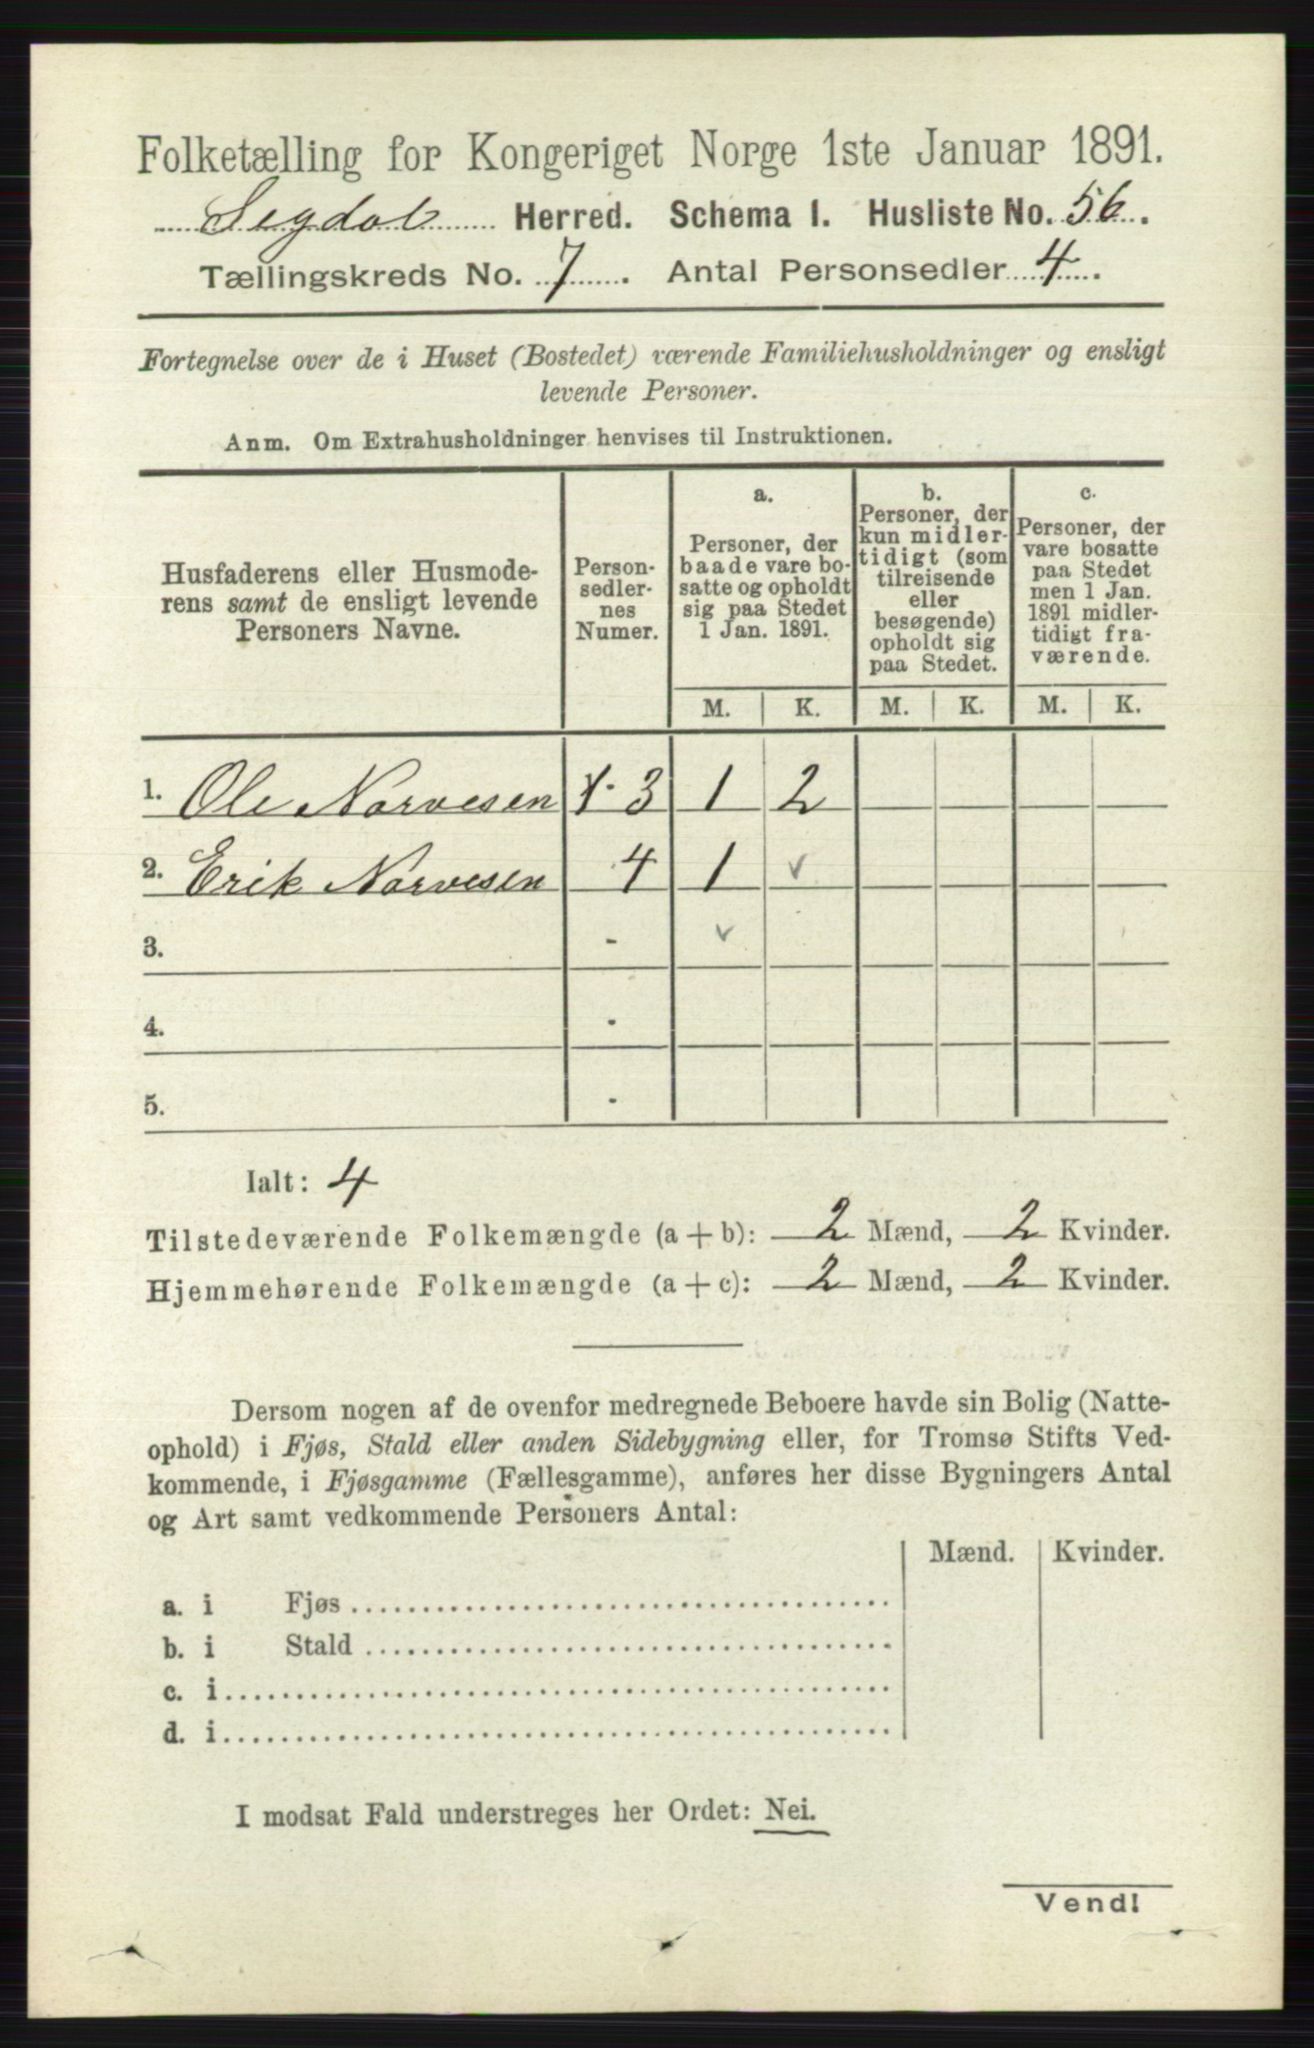 Folketælling for Kongeriget Norge 1ste Januar 1891.
Sigdal Herred. Schema I. Husliste No. 56.
Tællingskreds No. 7. Antal Personsedler 4.
Fortegnelse over de i Huset (Bostedet) værende Familiehusholdninger og ensligt
levende Personer.
Anm. Om Extrahusholdninger henvises til Instruktionen.
Husfaderens eller Husmode-
rens samt de ensligt levende
Personers Navne.
Person-
sedler-
nes
Numer.
a.
Personer, der
baade vare bo-
satte og opholdt
sig paa Stedet
1 Jan. 1891.
b.
Personer, der
kun midler-
tidigt (som
tilreisende
eller
besøgende)
opholdt sig
paa Stedet.
c.
Personer, der
vare bosatte
paa Stedet
men 1 Jan.
1891 midler-
tidigt fra-
værende.
M. K. M. K. M. K.
1. Ole Narvesen 1-3 1 2
2. Erik Narvesen 4 1 ✓
3. - ✓
4. -
5. -
Ialt: 4
Tilstedeværende Folkemængde (a + b): 2 Mænd, 2 Kvinder.
Hjemmehørende Folkemængde (a + c): 2 Mænd, 2 Kvinder.
Dersom nogen af de ovenfor medregnede Beboere havde sin Bolig (Natte-
ophold) i Fjøs, Stald eller anden Sidebygning eller, for Tromsø Stifts Ved-
kommende, i Fjøsgamme (Fællesgamme), anføres her disse Bygningers Antal
og Art samt vedkommende Personers Antal:
Mænd. Kvinder.
a. i Fjøs
b. i Stald
c. i
d. i
I modsat Fald understreges her Ordet: Nei.
Vend!